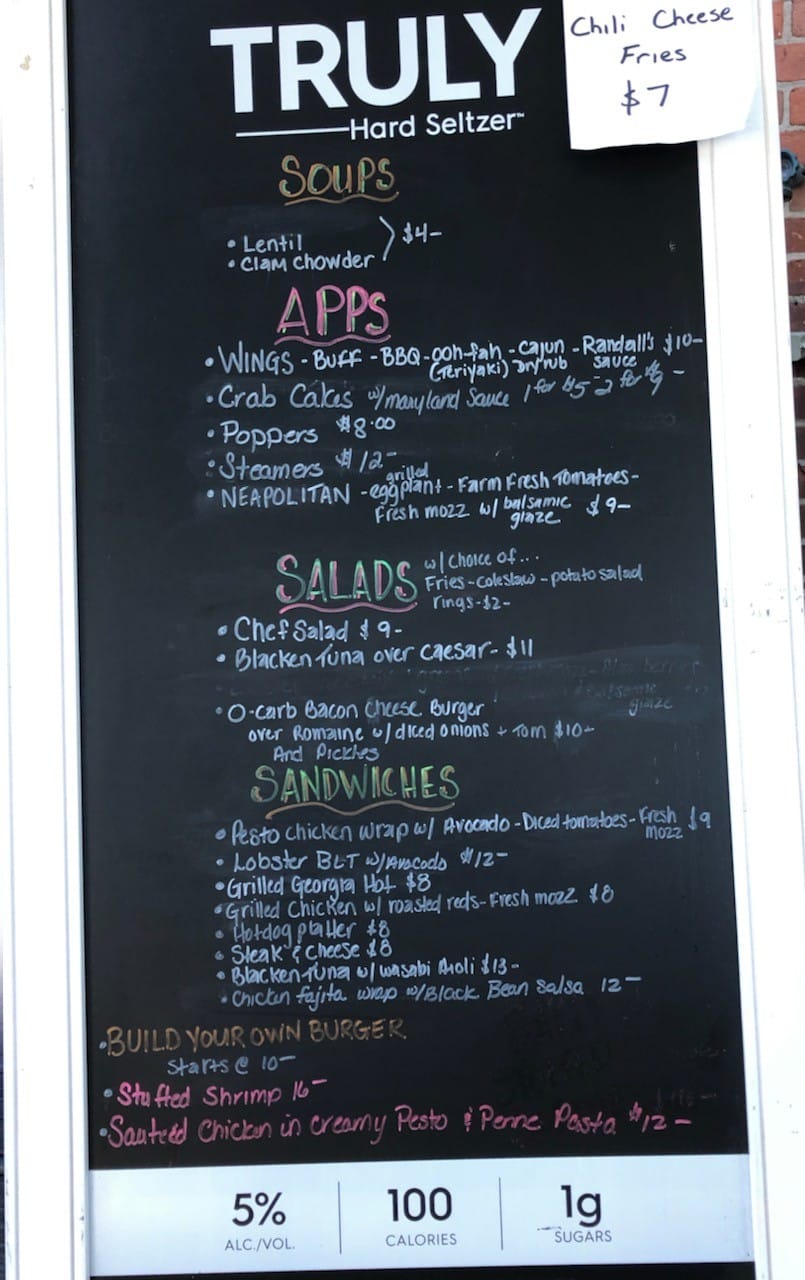 TRULY
Hard Seltzer™
Chili Cheese
Fries
$7
SOUPS
• Lentil
• Clam Chowder } $4-
APPS
• WINGS - Buff - BBQ - ooh-fah - Cajun - Randall's $10-
(Teriyaki) Dry rub sauce
• Crab Cakes w/ maryland Sauce 1 for $5 - 2 for $9 -
• Poppers $8.00
• Steamers $12-
• NEAPOLITAN - grilled eggplant - Farm Fresh Tomatoes -
Fresh mozz w/ balsamic glaze $9-
SALADS w/ Choice of...
Fries - coleslaw - potato salad
rings - $2-
• Chef Salad $9-
• Blacken Tuna over caesar - $11
balsamic
glaze
• O-carb Bacon Cheese Burger
over Romaine w/ diced onions + Tom $10-
And Pickles
SANDWICHES
• Pesto chicken wrap w/ Avocado - Diced tomatoes - Fresh mozz $9
• Lobster BLT w/ Avocado $12-
• Grilled Georgia Hot $8
• Grilled Chicken w/ roasted reds - Fresh mozz $8
• Hotdog platter $8
• Steak & Cheese $8
• Blacken Tuna w/ wasabi Aioli $13-
• Chicken fajita wrap w/ Black Bean Salsa 12-
• BUILD YOUR OWN BURGER
Starts @ 10-
• Stuffed Shrimp 16-
• Sauteéd Chicken in creamy Pesto & Penne Pasta $12-
5% 100 1g
ALC./VOL. CALORIES SUGARS